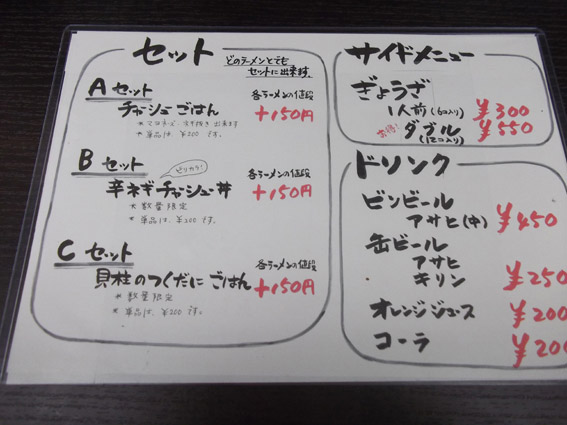 セット
どのラーメンとでも
セットに出来ます。
A セット
各ラーメンの値段
チャシューごはん
+150円
*マヨネーズ、ネギ抜き出来ます
*単品は、¥200です。
B セット
ピリカラ!
各ラーメンの値段
辛ネギチャシュー丼
+150円
*数量限定
*単品は、¥200です。
C セット
各ラーメンの値段
貝柱のつくだにごはん
+150円
*数量限定
*単品は、¥200です。
サイドメニュー
ぎょうざ
1人前(6コ入り) ¥300
お得! ダブル ¥550
(12コ入り)
ドリンク
ビンビール
アサヒ(中) ¥450
缶ビール
アサヒ
キリン ¥250
オレンジジュース ¥200
コーラ ¥200